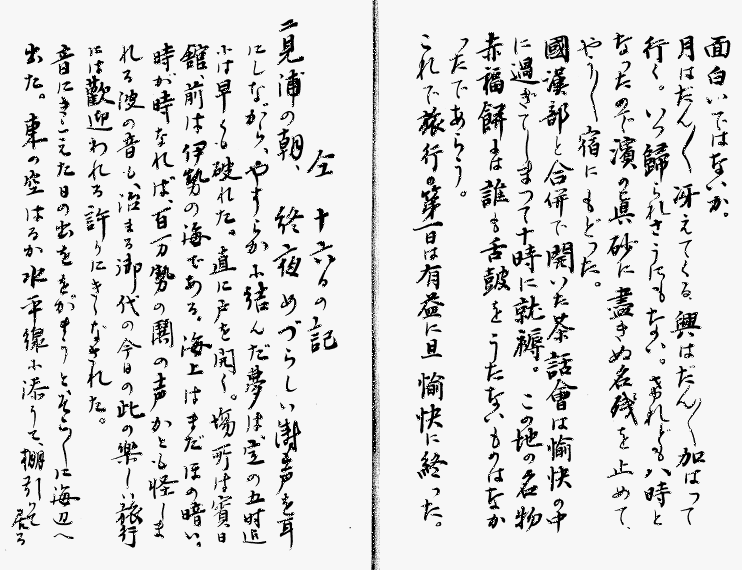 面白いではないか。
月はだん〳〵冴えてくる、興はだん〳〵加はって
行く。いつ歸られさうにもない。されども八時と
なったので濱の眞砂に盡きぬ名残を止めて、
やう〳〵宿にもどった。
國漢部と合併で開いた茶話會は愉快の中
に過ぎてしまつて十時に就褥。この地の名物
赤福餅には誰も舌鼓をうたないものはなか
ったであらう。
これで旅行の第一日は有益に且愉快に終った。
仝 十六日の記
二見浦の朝、終夜めづらしい濤声を耳
にしながら、やすらかに結んだ夢は室の五时近
には早くも破れた。直に戸を開く。場所は賓日
舘、前は伊勢の海である。海上はまだほの暗い。
時が時なれば、百万勢の鬨の声かとも怪しま
れる波の音も、治まる御代の今日の此の樂しい旅行
には歡迎われる許りにきゝなされた。
音にきこえた日の出ををがまうと、そろ〳〵に海辺へ
出た。東の空はるか水平線に添うて、棚引いて居る